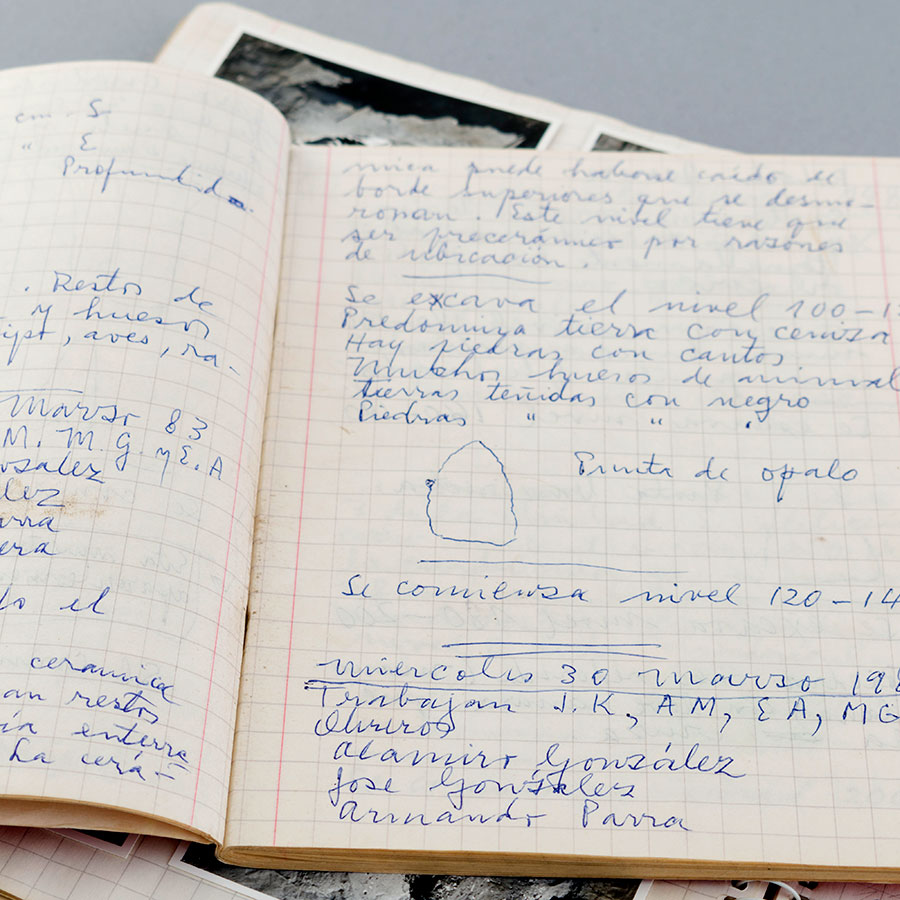 cm - S
" E
Profundid
. Restos de
y huesos
ipt, aves, ra-
Marzo 83
M. M. G. y E. A
zalez
lez
rra
era
do el
ceramica
an restos
ía enterra
La cerá-
mica puede haberse caído de
borde superiores que se desmo-
ronan. Este nivel tiene que
ser precerámico por razones
de ubicación.
Se excava el nivel 100-1
Predomina tierra con ceniza
Hay piedras con cantos
Muchos huesos de animal
tierras teñidas con negro
Piedras " " "
Punta de opalo
Se comienza nivel 120-14
miercoles 30 marzo 198
Trabajan J.K, AM, EA, MG
Obreros
Alamiro González
Jose González
Armando Parra